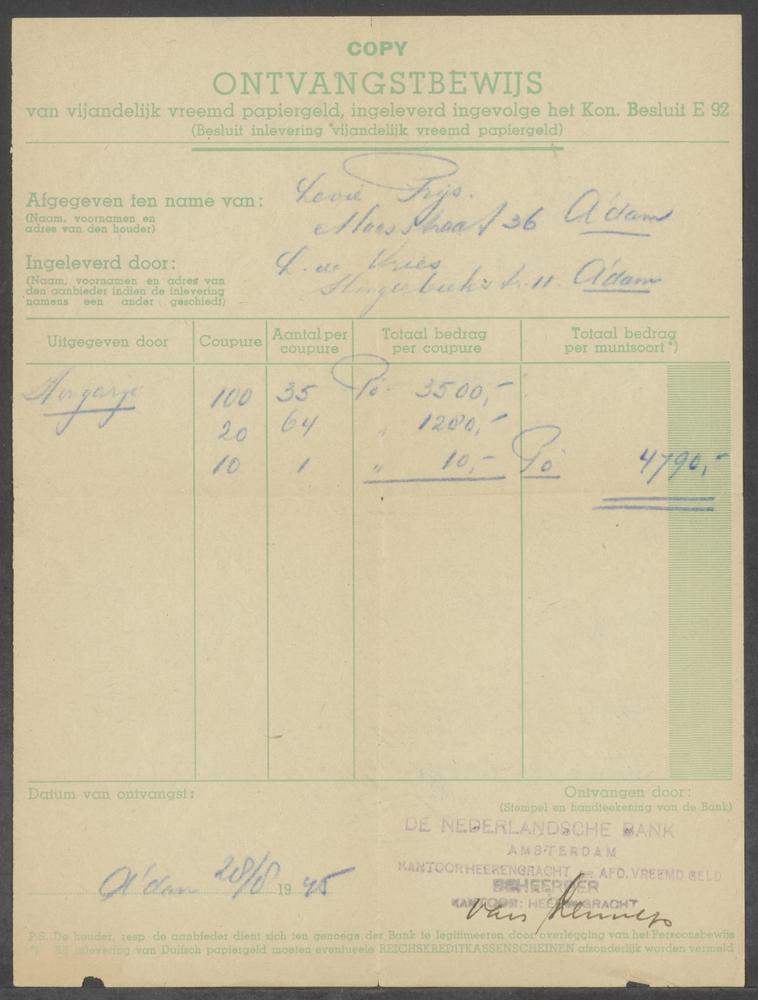 COPY
ONTVANGSTBEWIJS
van vijandelijk vreemd papiergeld, ingeleverd ingevolge het Kon. Besluit E 92
(Besluit inlevering vijandelijk vreemd papiergeld)
Afgegeven ten name van: Levie Prijs.
(Naam, voornamen en
adres van den houder) Maasstraat 36 A'dam
Ingeleverd door: L. de Vries
(Naam, voornamen en adres van
den aanbieder indien de inlevering
namens een ander geschiedt) 11. A'dam
Uitgegeven door Coupure Aantal per coupure Totaal bedrag per coupure Totaal bedrag per muntsoort *)
Hongarije 100 35 Pö. 3500,-
20 64 " 1280,-
10 1 " 10,- Pö 4790,-
Datum van ontvangst: Ontvangen door:
(Stempel en handteekening van de Bank)
DE NEDERLANDSCHE BANK
AMSTERDAM
KANTOOR HEERENGRACHT — AFD. VREEMD GELD
BEHEERDER
KANTOOR: HEERENGRACHT
A'dam 28/8 1945 van Lennep
P.S. De houder, resp. de aanbieder dient zich ten genoege der Bank te legitimeeren door overlegging van het Persoonsbewijs
*) Bij inlevering van Duitsch papiergeld moeten eventueele REICHSKREDITKASSENSCHEINEN afzonderlijk worden vermeld